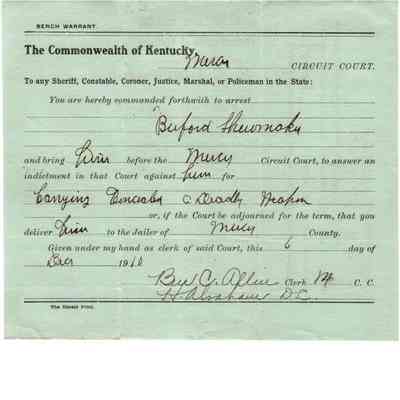 BENCH WARRANT.
The Commonwealth of Kentucky,
Mercer CIRCUIT COURT.
To any Sheriff, Constable, Coroner, Justice, Marshal, or Policeman in the State:
You are hereby commanded forthwith to arrest
Buford Shewmaker
and bring him before the Mercer Circuit Court, to answer an
indictment in that Court against him for
Carrying Concealed a Deadly Weapon
or, if the Court be adjourned for the term, that you
deliver him to the Jailer of Mercer County.
Given under my hand as clerk of said Court, this 6 day of
Dec 191
Ben C. Allin Clerk M C. C.
H. D. C.